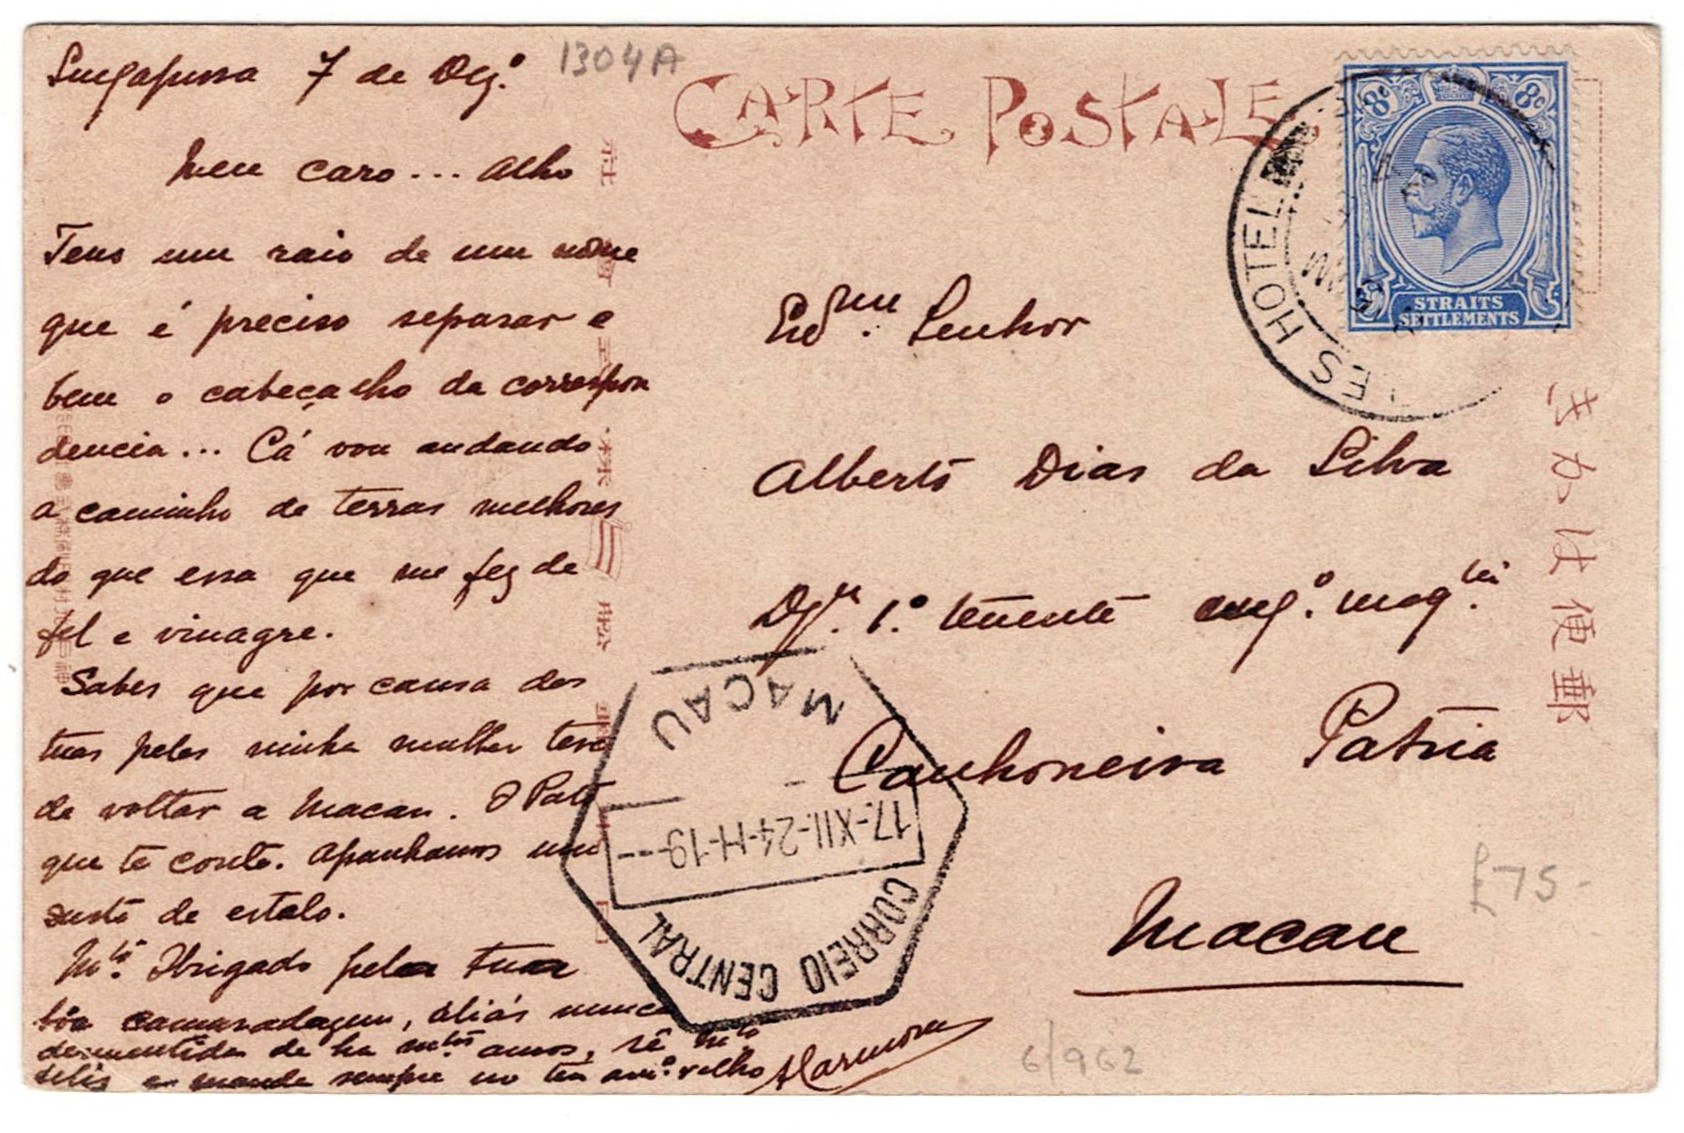 Singapura 7 de Dez.º
1304A
CARTE POSTALE
Meu caro... Alho
Tens um raio de um nome
que é preciso separar e
bem o cabeçalho da correspon
dencia... Cá vou andando
a caminho de terras melhores
do que essa que me fez de
fel e vinagre.
Sabes que por causa dos
tuas peles minha mulher teve
de voltar a Macau. O Pato
que te conte. Apanhamos um
susto de estalo.
Mtº. Obrigado pela tua
bôa camaradagem, aliás nunca
desmentida de ha mtos anos, sê mto
feliz e manda sempre no teu amº. velho
8c 8c
STRAITS
SETTLEMENTS
LES HOTEL
PM
Senhor
Alberto Dias da Silva
1.º tenente engº. maq.
Canhoneira Patria
Macau
MACAU
17.-XII.-24-H-19---
CORREIO CENTRAL
きかは便郵
£75-
6/962